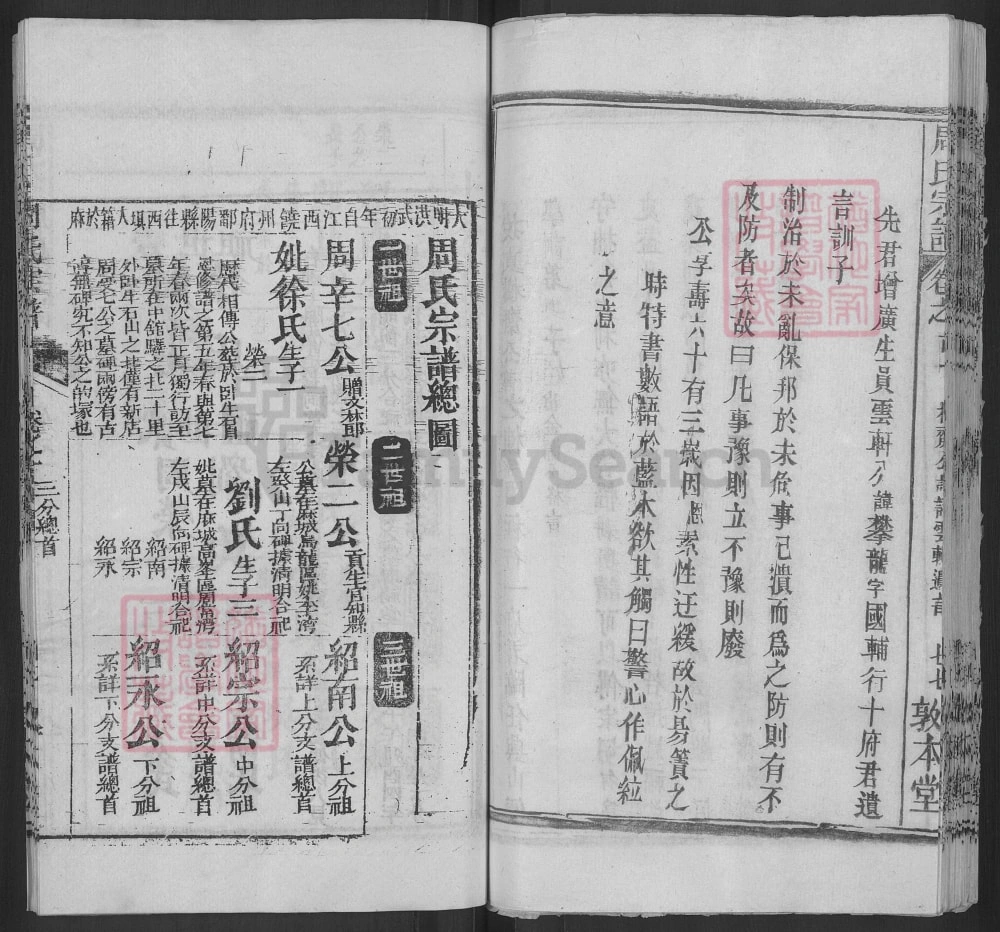 周氏宗譜
先君增廣生員雲軒公諱攀龍字國輔行十府君遺
言訓子
制治於未亂保邦於未危事已潰而為之防則有不
及防者矣故曰凡事豫則立不豫則廢
公享壽六十有三歲因思素性迂緩故於易簀之
時特書數語於藍本欲其觸目警心作佩紘
之意
敦本堂
周氏宗譜總圖
一世祖
二世祖
三世祖
大明洪武初年自江西饒州府鄱陽縣往西填大籍於麻
周辛七公
妣徐氏生子一
榮二
歷代相傳公墓於卧牛石首
年春兩次皆正月獨行訪至
墓所在中舘驛之北二十里
外卧牛石山之北僅有新店
周受七公之墓碑兩傍有古
榮二公貢生官知縣
公墓在麻城烏龍區姚李湾
左癸山丁向碑據清明合祀
劉氏生子三
左戌山辰向碑據清明合祀
紹南
紹宗
紹永
紹南公上分祖
系詳上分支譜總首
紹宗公中分祖
系詳中分支譜總首
紹永公下分祖
系詳下分支譜總首
三分總首
FamilySearch